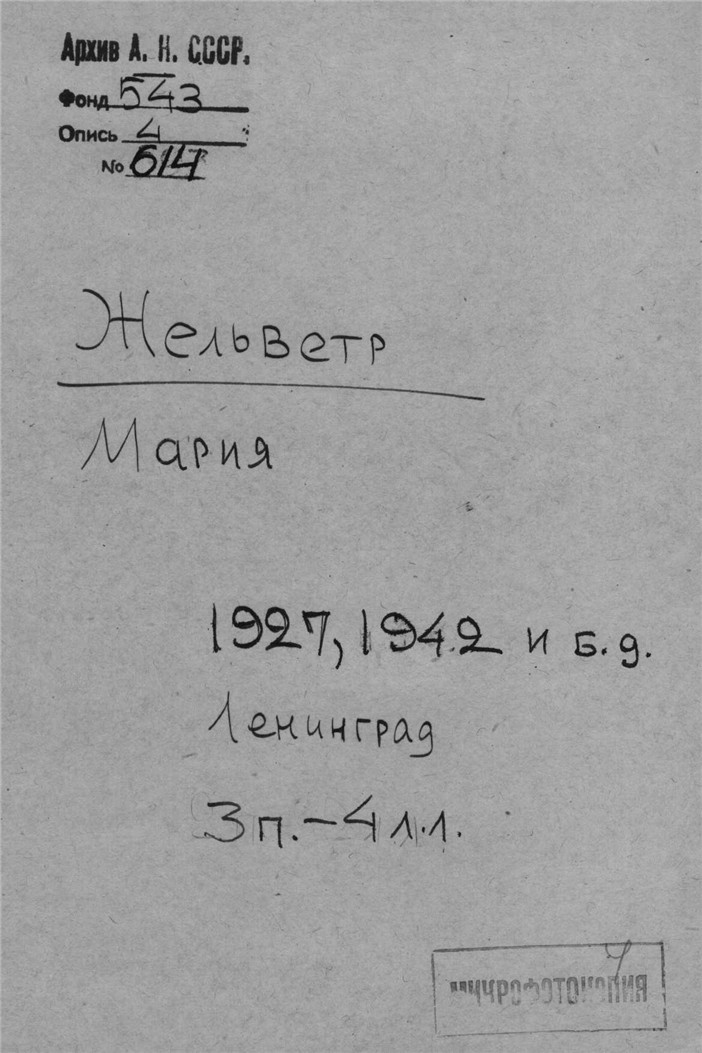 Архив А. Н. СССР.
Фонд 543
Опись 4
No 614
Жельветр
Мария
1927, 1942 и б.д.
Ленинград
3 п. – 4 л.л.
МИКРОФОТОКОПИЯ